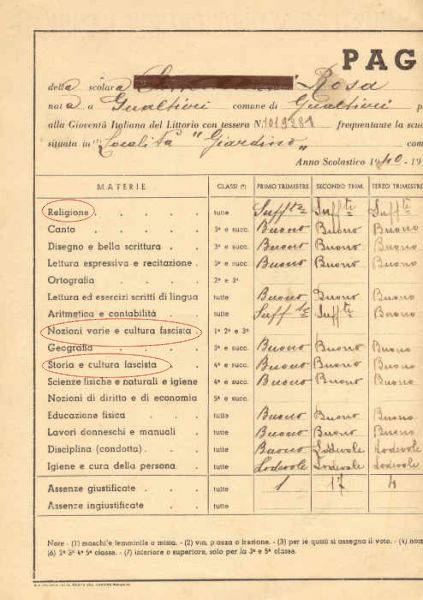 PAG
della scolara Rosa
nata a Gualtieri comune di Gualtieri p
alla Gioventù Italiana del Littorio con tessera N. 1019281 frequentante la scuo
situata in "Località "Giardino" com
Anno Scolastico 1940-19
MATERIE CLASSI (⁵) PRIMO TRIMESTRE SECONDO TRIM. TERZO TRIMESTRE
Religione . . . . . tutte Suff.te Suff.te Suff.te
Canto . . . . . 3ª e succ. Buono Buono Buono
Disegno e bella scrittura . . . 3ª e succ. Buono Buono Buono
Lettura espressiva e recitazione . 3ª e succ. Buono Buono Buono
Ortografia . . . . . 2ª e 3ª
Lettura ed esercizi scritti di lingua tutte Buono Buono Buono
Aritmetica e contabilità . . . tutte Suff.te Suff.te Buono
Nozioni varie e cultura fascista 1ª 2ª e 3ª
Geografia . . . . . 3ª e succ. Buono Buono Buono
Storia e cultura fascista . . . 4ª e succ. Buono Buono Buono
Scienze fisiche e naturali e igiene 4ª e succ. Buono Buono Buono
Nozioni di diritto e di economia 5ª e succ.
Educazione fisica . . . . tutte Buono Buono Buono
Lavori donneschi e manuali tutte Buono Buono Buono
Disciplina (condotta) . . . . tutte Buono Lodevole Lodevole
Igiene e cura della persona . . tutte Lodevole Lodevole Lodevole
Assenze giustificate . . . 1 17 4
Assenze ingiustificate . . .
Note - (1) maschile femminile o mista. - (2) via, piazza o frazione. - (3) per le quali si assegna il voto. - (4) nom
(6) 2ª 3ª 4ª 5ª classe. - (7) inferiore o superiore, solo per la 3ª e 5ª classe.